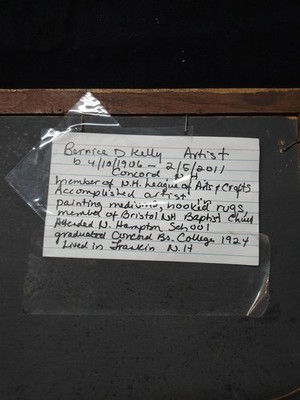 Bernice D Kelly Artist
b 4/10/1906 - 2/5/2011
Concord N.H
member of N.H. League of Arts & Crafts
Accomplished artist in
painting mediums, hooked rugs,
member of Bristol NH Baptist Church
Attended N. Hampton School
graduated Concord Bs. College 1924
Lived in Franklin N.H